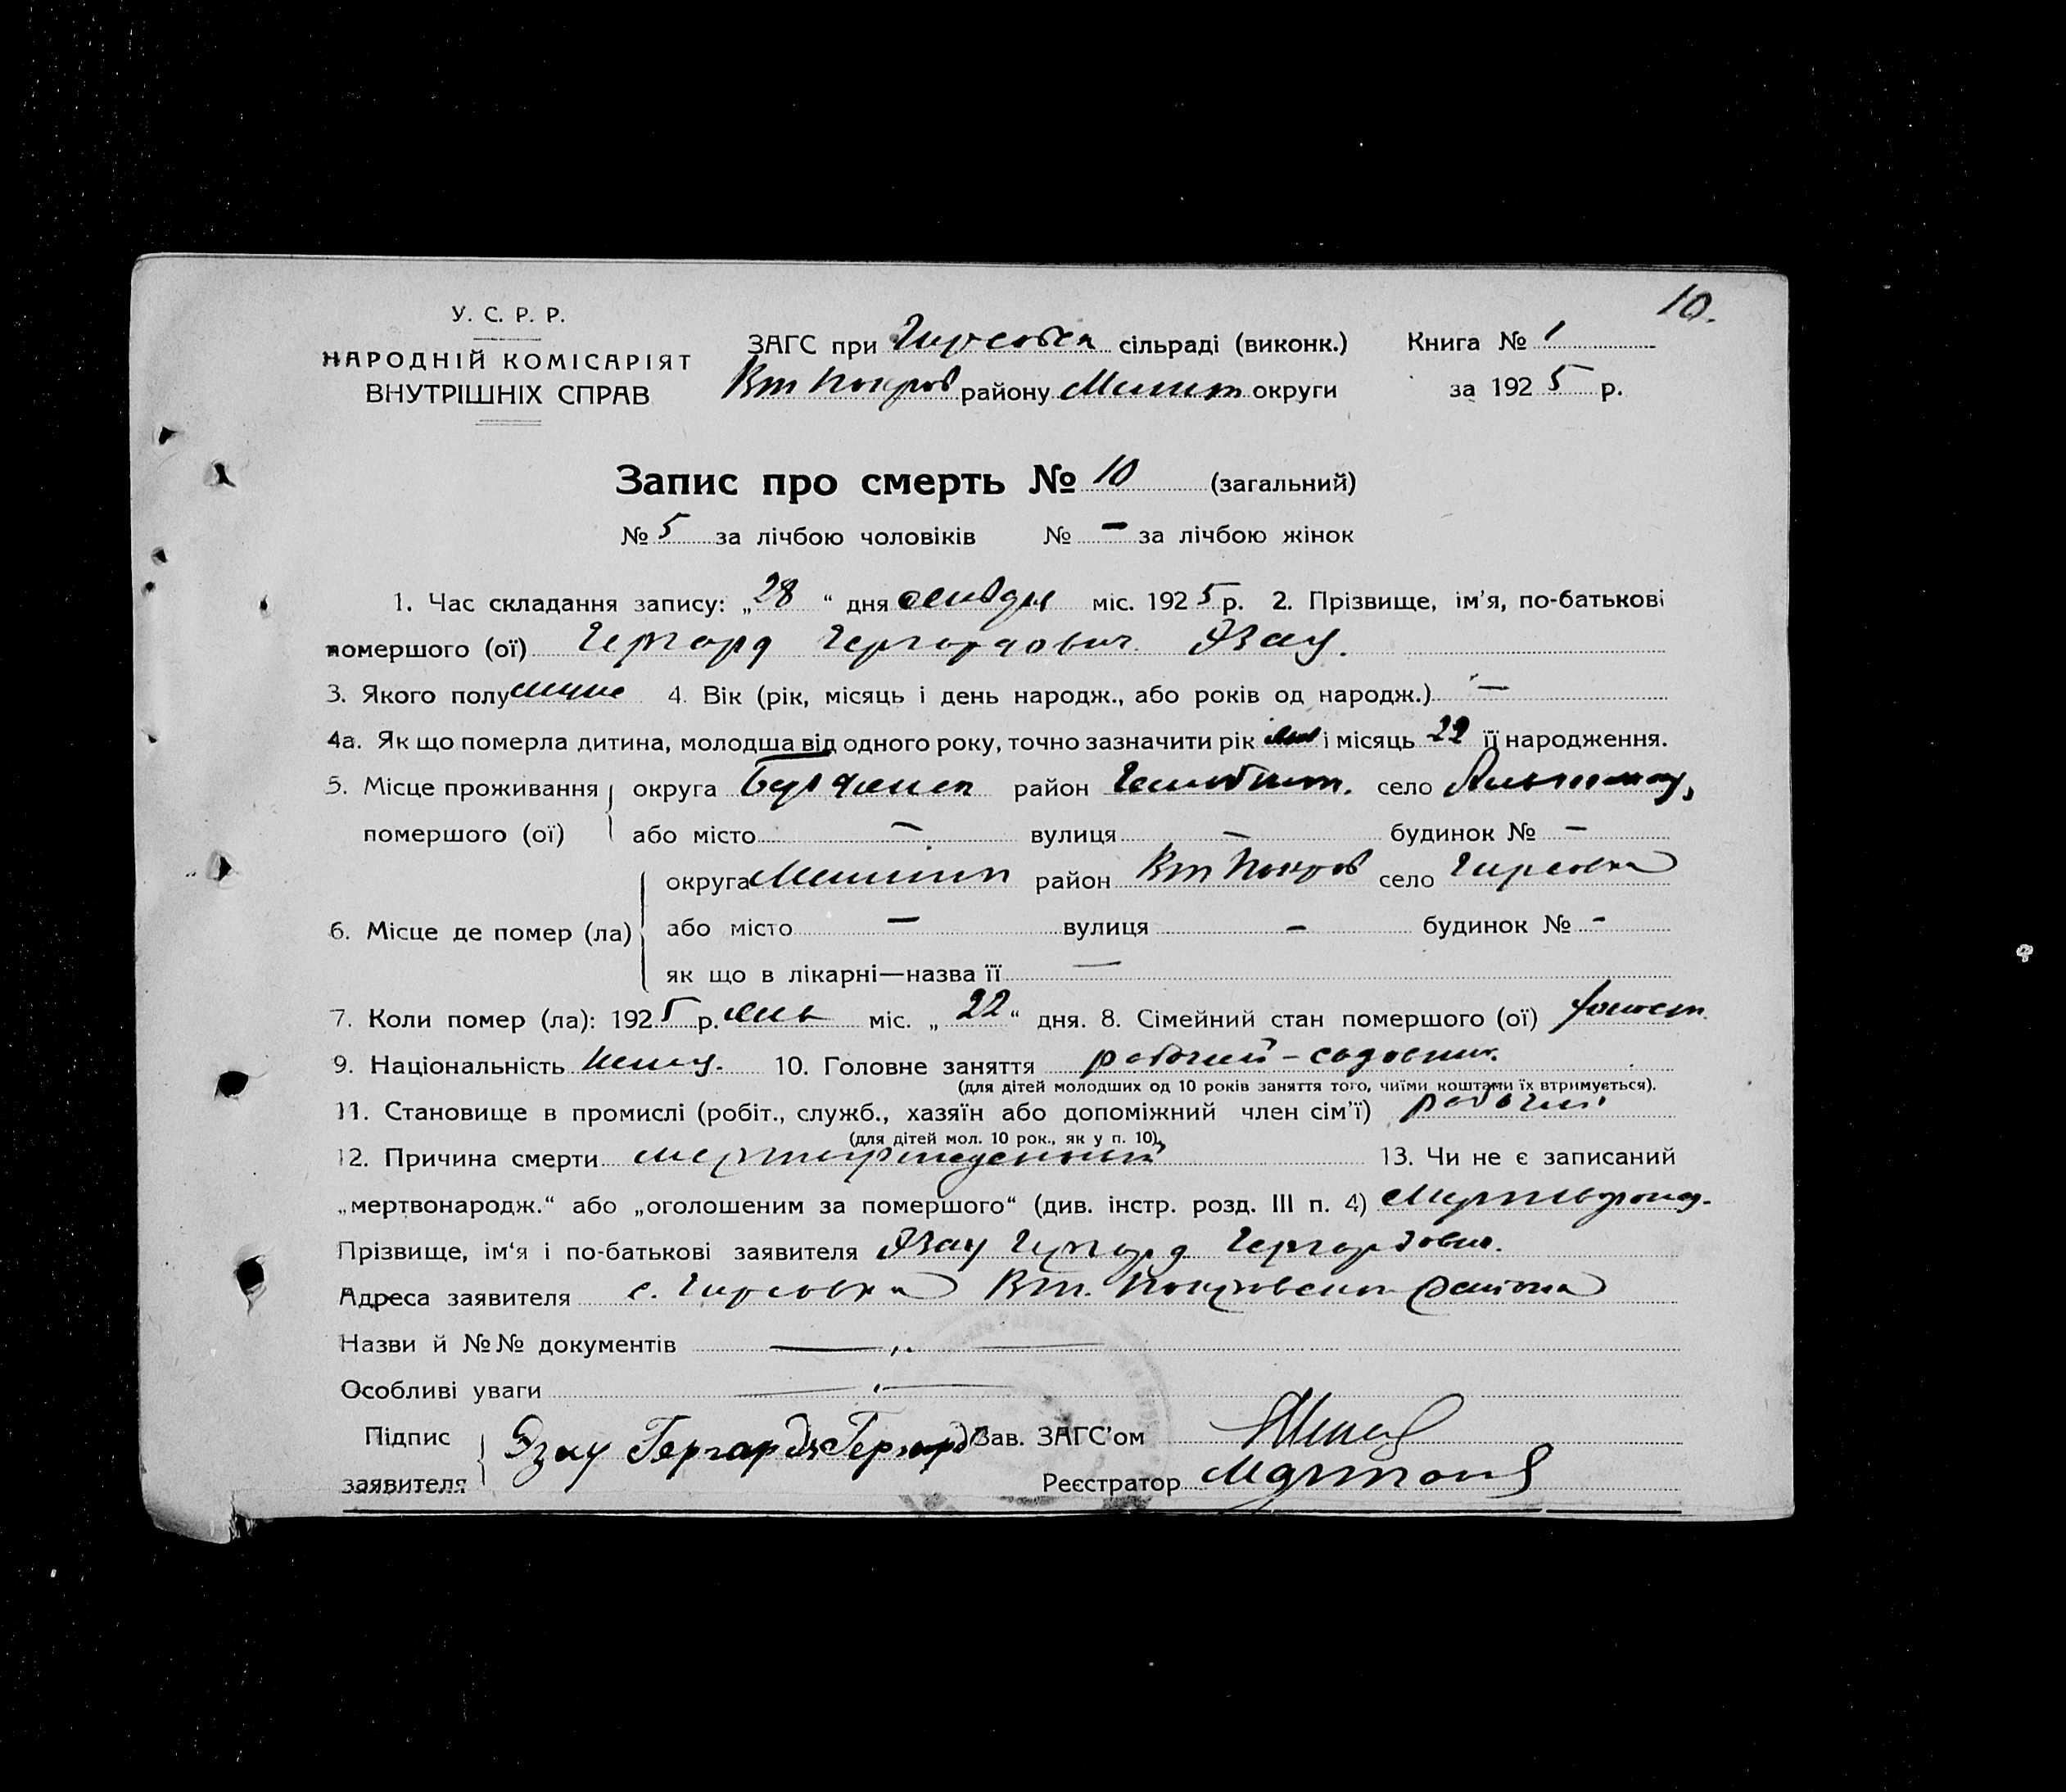 10.
У. С. Р. Р.
НАРОДНІЙ КОМІСАРІЯТ
ВНУТРІШНІХ СПРАВ
ЗАГС при Гирсовск сільраді (виконк.)
Книга № 1
Вт Покров району Мелит округи
за 1925 р.
Запис про смерть № 10 (загальний)
№ 5 за лічбою чоловіків № — за лічбою жінок
1. Час складання запису: „28“ дня міс. 1925 р. 2. Прізвище, ім'я, по-батькові
помершого (ої) Гергард Гергардович Язау.
3. Якого полу 4. Вік (рік, місяць і день народж., або років од народж.) —
4а. Як що померла дитина, молодша від одного року, точно зазначити рік і місяць 22 її народження.
5. Місце проживання округа район село
помершого (ої) або місто — вулиця — будинок № —
округа Мелитоп район Вт Покров село Гирсовка
6. Місце де помер (ла) або місто — вулиця — будинок № -
як що в лікарні—назва її —
7. Коли помер (ла): 1925 р. міс. „22“ дня. 8. Сімейний стан помершого (ої) холост
9. Національність немец. 10. Головне заняття рабочий-садовник.
(для дітей молодших од 10 років заняття того, чиїми коштами їх втримується).
11. Становище в промислі (робіт., служб., хазяїн або допоміжний член сім'ї) рабочий
(для дітей мол. 10 рок., як у п. 10).
12. Причина смерти мертворожденный 13. Чи не є записаний
„мертвонародж.“ або „оголошеним за помершого“ (див. інстр. розд. III п. 4) Мертворожд.
Прізвище, ім'я і по-батькові заявителя Язау Гергард Гергардович.
Адреса заявителя с. Гирсовка Вт. Покровского района
Назви й №№ документів — „ —
Особливі уваги — „ —
Підпис
заявителя
Язау Гергардъ Гергард
Зав. ЗАГС'ом
Реєстратор